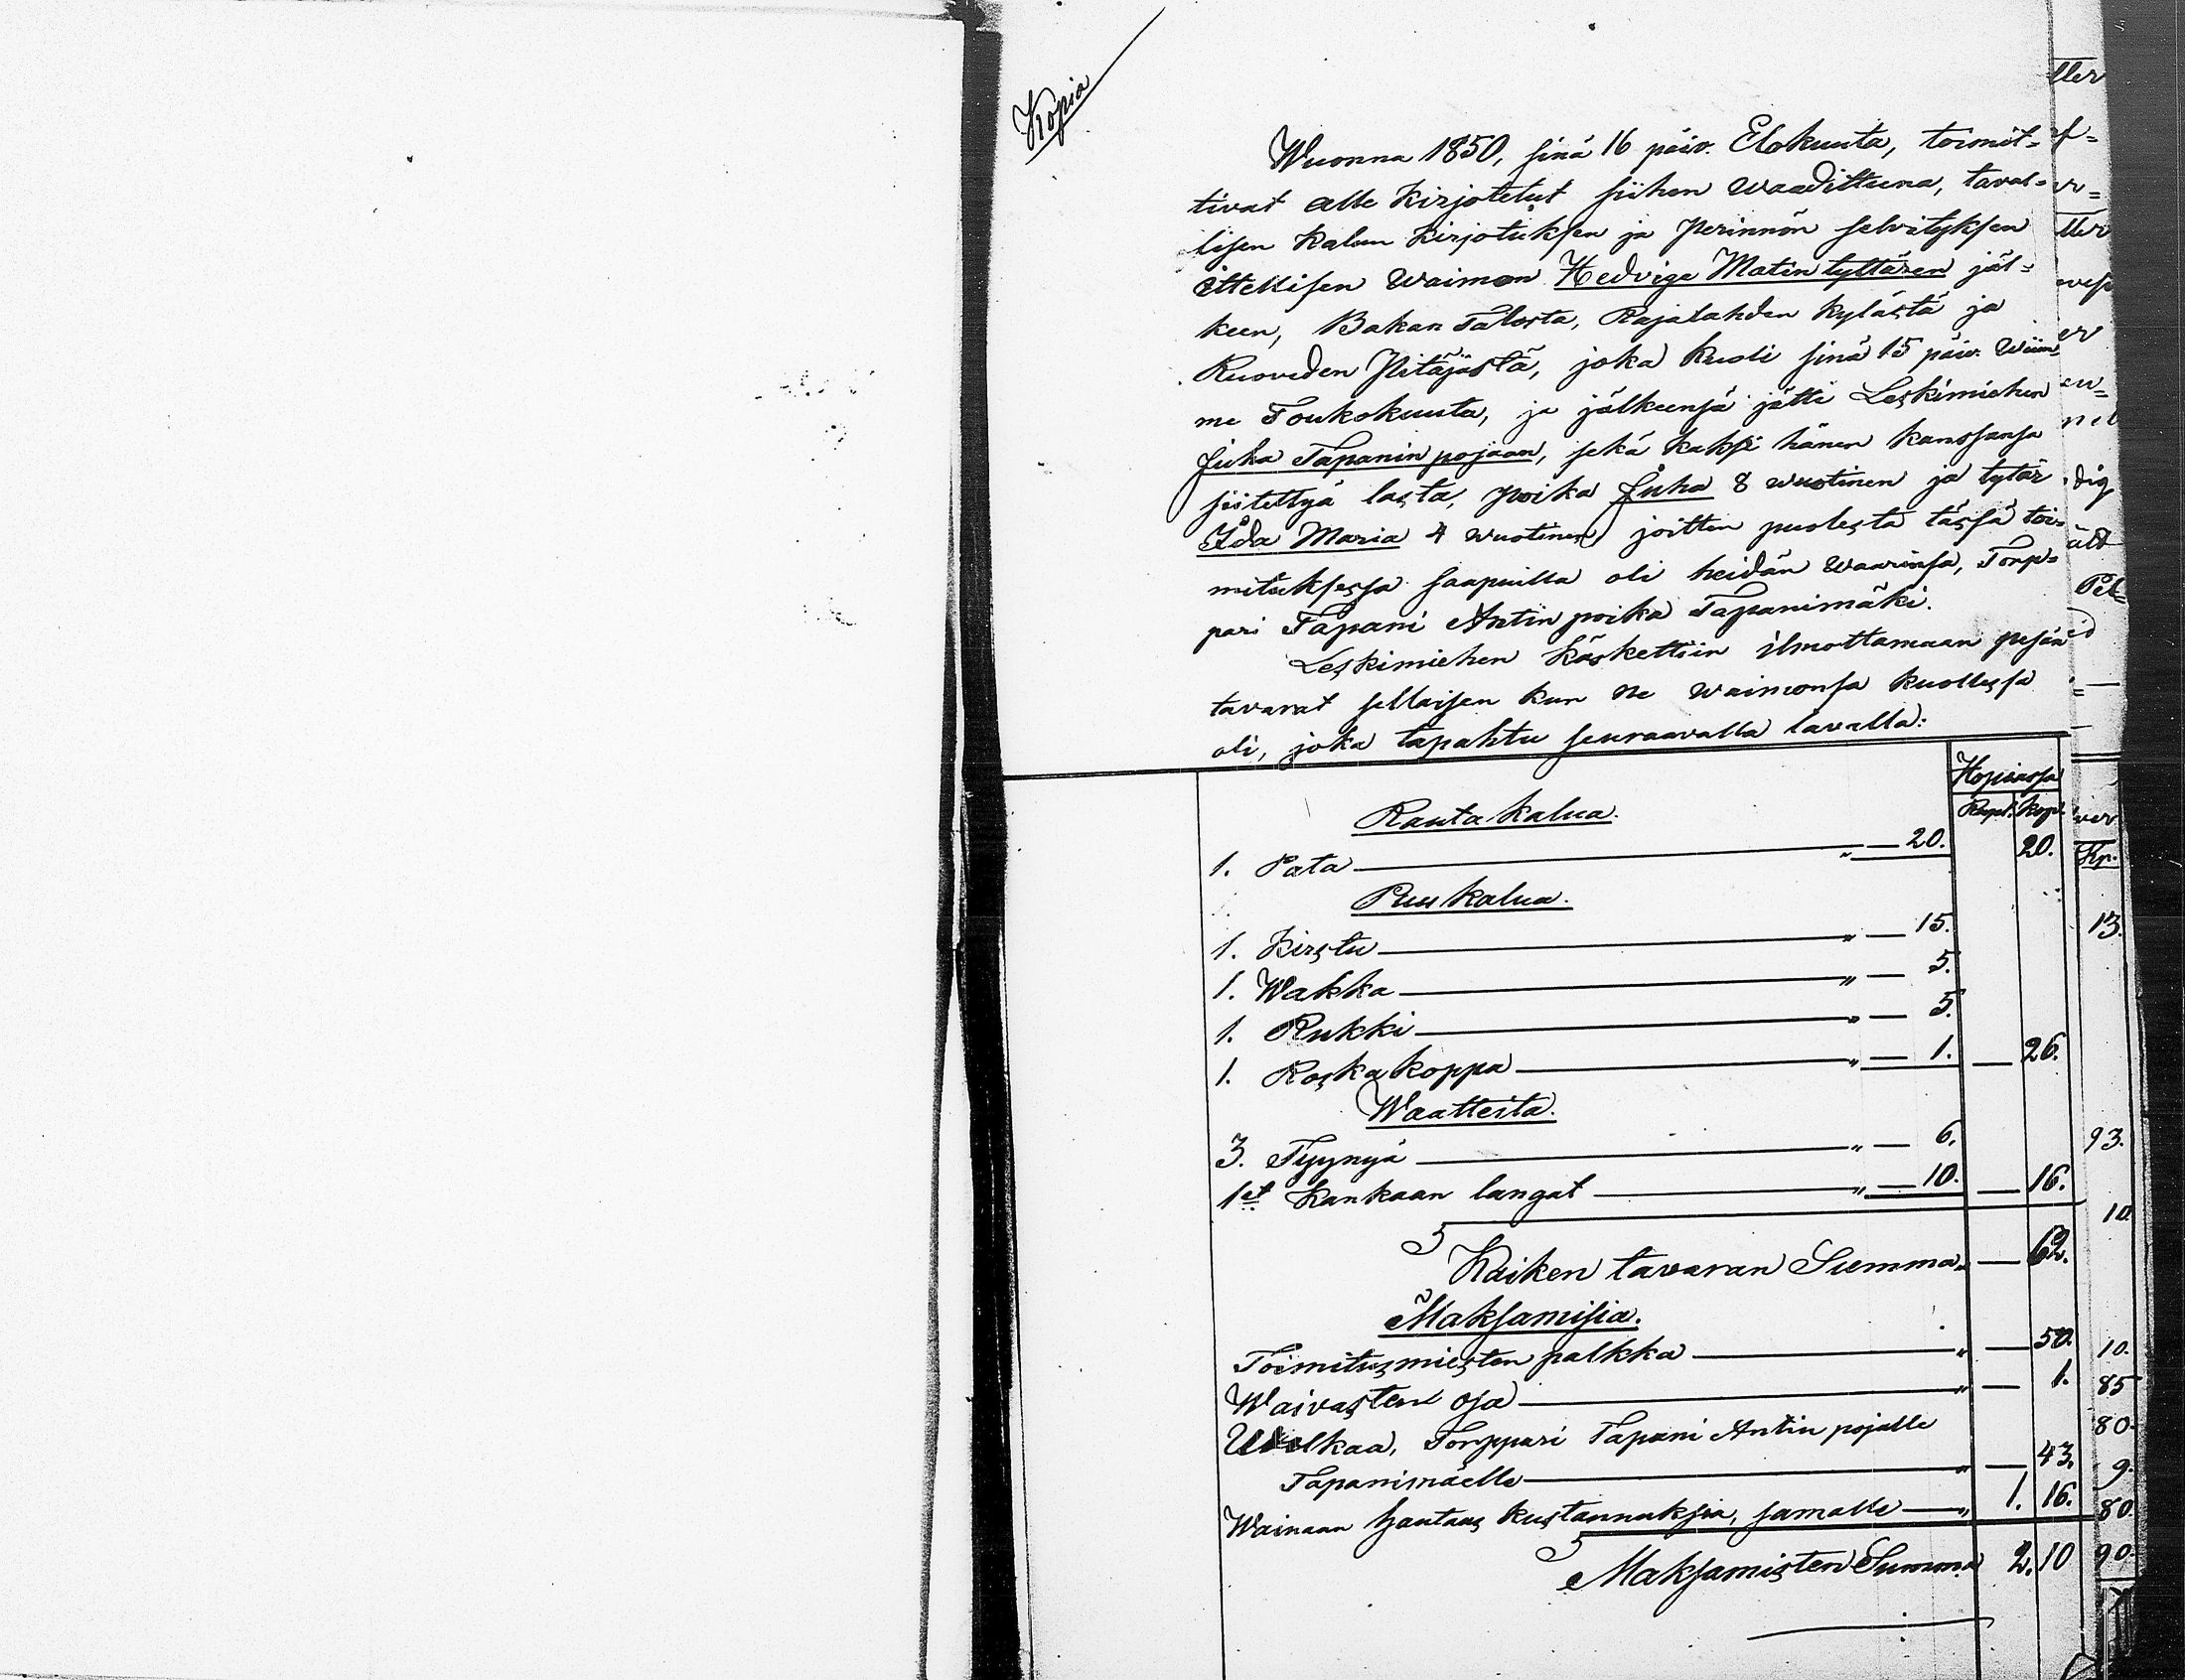 Kopia
Wuonna 1850, sinä 16 päiv. Elokuuta, toimit=
tivat alle kirjotetut siihen waadittuna, taval=
lisen kalun kirjotuksen ja perinnön selvityksen
ittellisen waimon Hedviga Matin tyttären jäl=
keen, Bakan Talosta, Rajalahden kylästä ja
Ruoveden Pitäjästä, joka kuoli sinä 15 päiv. wiim
me Toukokuuta, ja jälkeensä jätti Leskimiehen
Juha Tapanin pojaan, sekä kaksi hänen kanssansa
siitettyä lasta, poika Juha 8 wuotinen ja tytär
Ida Maria 4 wuotinen joitten puolesta tässä toi=
mituksessa saapuilla oli heidän Waarinsa, Torp=
pari Tapani Antin poika Tapanimäki.
Leskimiehen käskettiin ilmottamaan pesän
tavarat sellaisen kun ne waimonsa kuollessa
oli, joka tapahtu seuraavalla tavalla:
Hopiassa
Rupl. kop.
Rauta kalua.
1. Pata " — 20. 20.
Puu kalua.
1. Kirstu " — 15.
1. Wakka " — 5.
1. Rukki " — 5.
1. Roska koppa " — 1. — 26.
Waatteita.
3. Tyynyä " — 6.
1et Kankaan langat " — 10. — 16.
Kaiken tavaran Summa " — 62.
Maksamisia.
Toimitusmiesten palkka " — 50.
Waivasten osa " — 1.
Welkaa, Torppari Tapani Antin pojalle
Tapanimäelle " — 43.
Wainaan hautaus kustannuksia, samalle " 1. 16.
Maksamisten Summa 2. 10
ver
Kp.
13.
93.
10.
10.
85
80.
9.
80.
90.